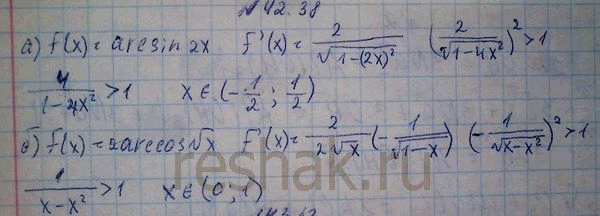 №42.38
а) f(x) = arcsin 2x f'(x) = 2/√(1-(2x)²) (2/√(1-4x²))² > 1
4/(1-4x²) > 1 x ∈ (-1/2; 1/2)
б) f(x) = 2arccos√x f'(x) = 2/(2√x) (-1/√(1-x)) (-1/√(x-x²))² > 1
reshak.ru
1/(x-x²) > 1 x ∈ (0; 1)